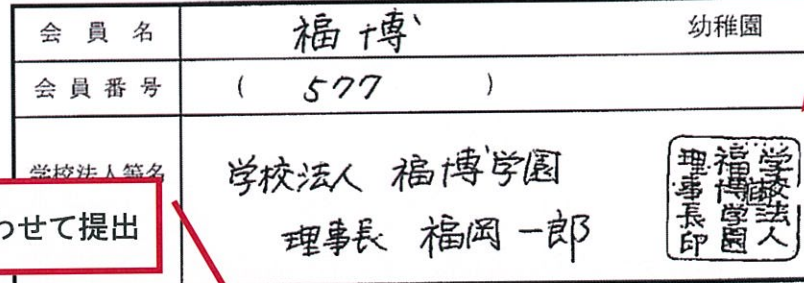 会員名 福博 幼稚園
会員番号 ( 577 )
学校法人等名 学校法人 福博学園
理事長 福岡一郎
学校法人
福博学園
理事長印
わせて提出